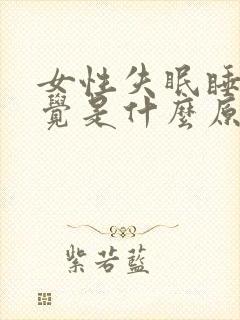 女性失眠睡
覺是什麼原
紫若藍